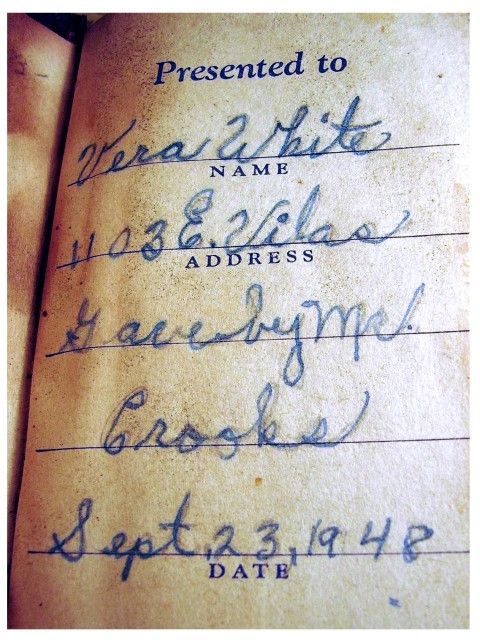 Presented to
Vera White
NAME
1103 E. Vilas
ADDRESS
Gave by Mr.
Crooks
Sept. 23, 1948
DATE